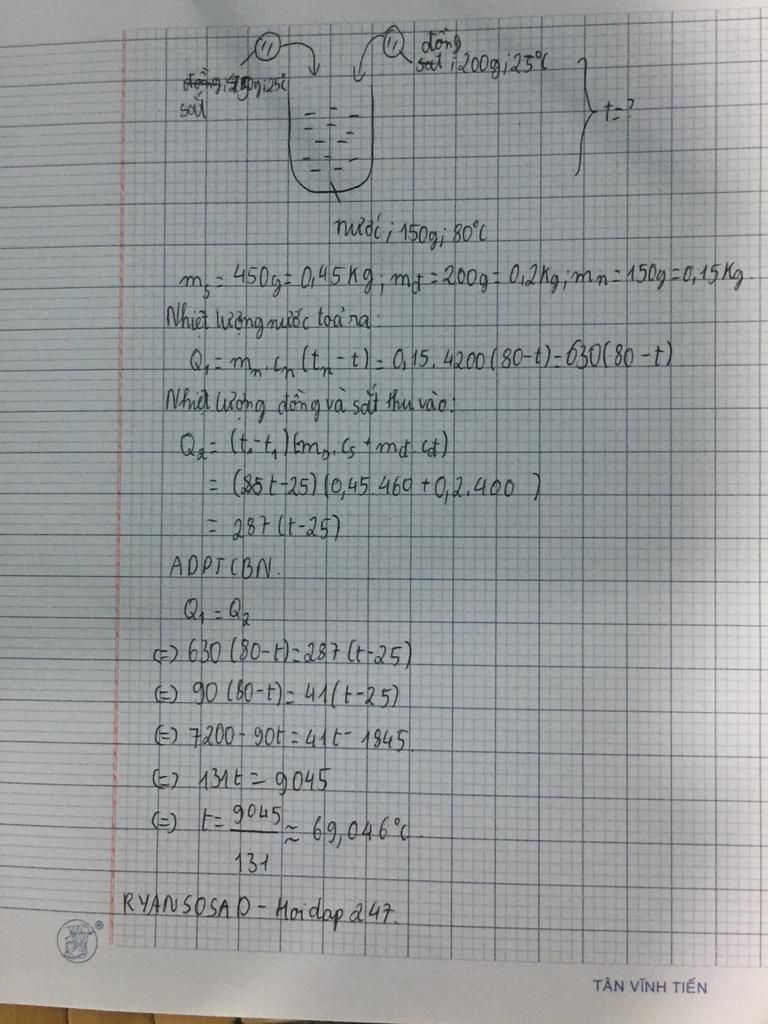 đồng
sắt; 200g; 25°C
sắt
t=?
nước; 150g; 80°C
ms = 450g = 0,45Kg; mđ = 200g = 0,2Kg; mn = 150g = 0,15Kg
Nhiệt lượng nước toả ra:
Q₁ = mn.cn (tn - t) = 0,15.4200(80-t) = 630(80-t)
Nhiệt lượng đồng và sắt thu vào:
Q₂ = (t - t₁)(ms.cs + mđ.cđ)
= (t-25)(0,45.460 + 0,2.400)
= 287(t-25)
ADPTCBN.
Q₁ = Q₂
(=) 630(80-t) = 287(t-25)
(=) 90(80-t) = 41(t-25)
(=) 7200 - 90t = 41t - 1845
(=) 131t = 9045
(=) t = 9045/131 ≈ 69,046°C
RYANSOSAD - Hoidap247.
TÂN VĨNH TIẾN